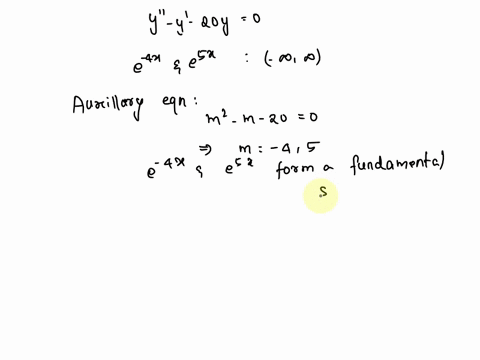 y'' - y' - 20y = 0
e^{-4x} & e^{5x} : (-∞, ∞)
Auxillory eqn:
m² - m - 20 = 0
⇒ m = -4, 5
e^{-4x} & e^{5x} form a fundamental
s